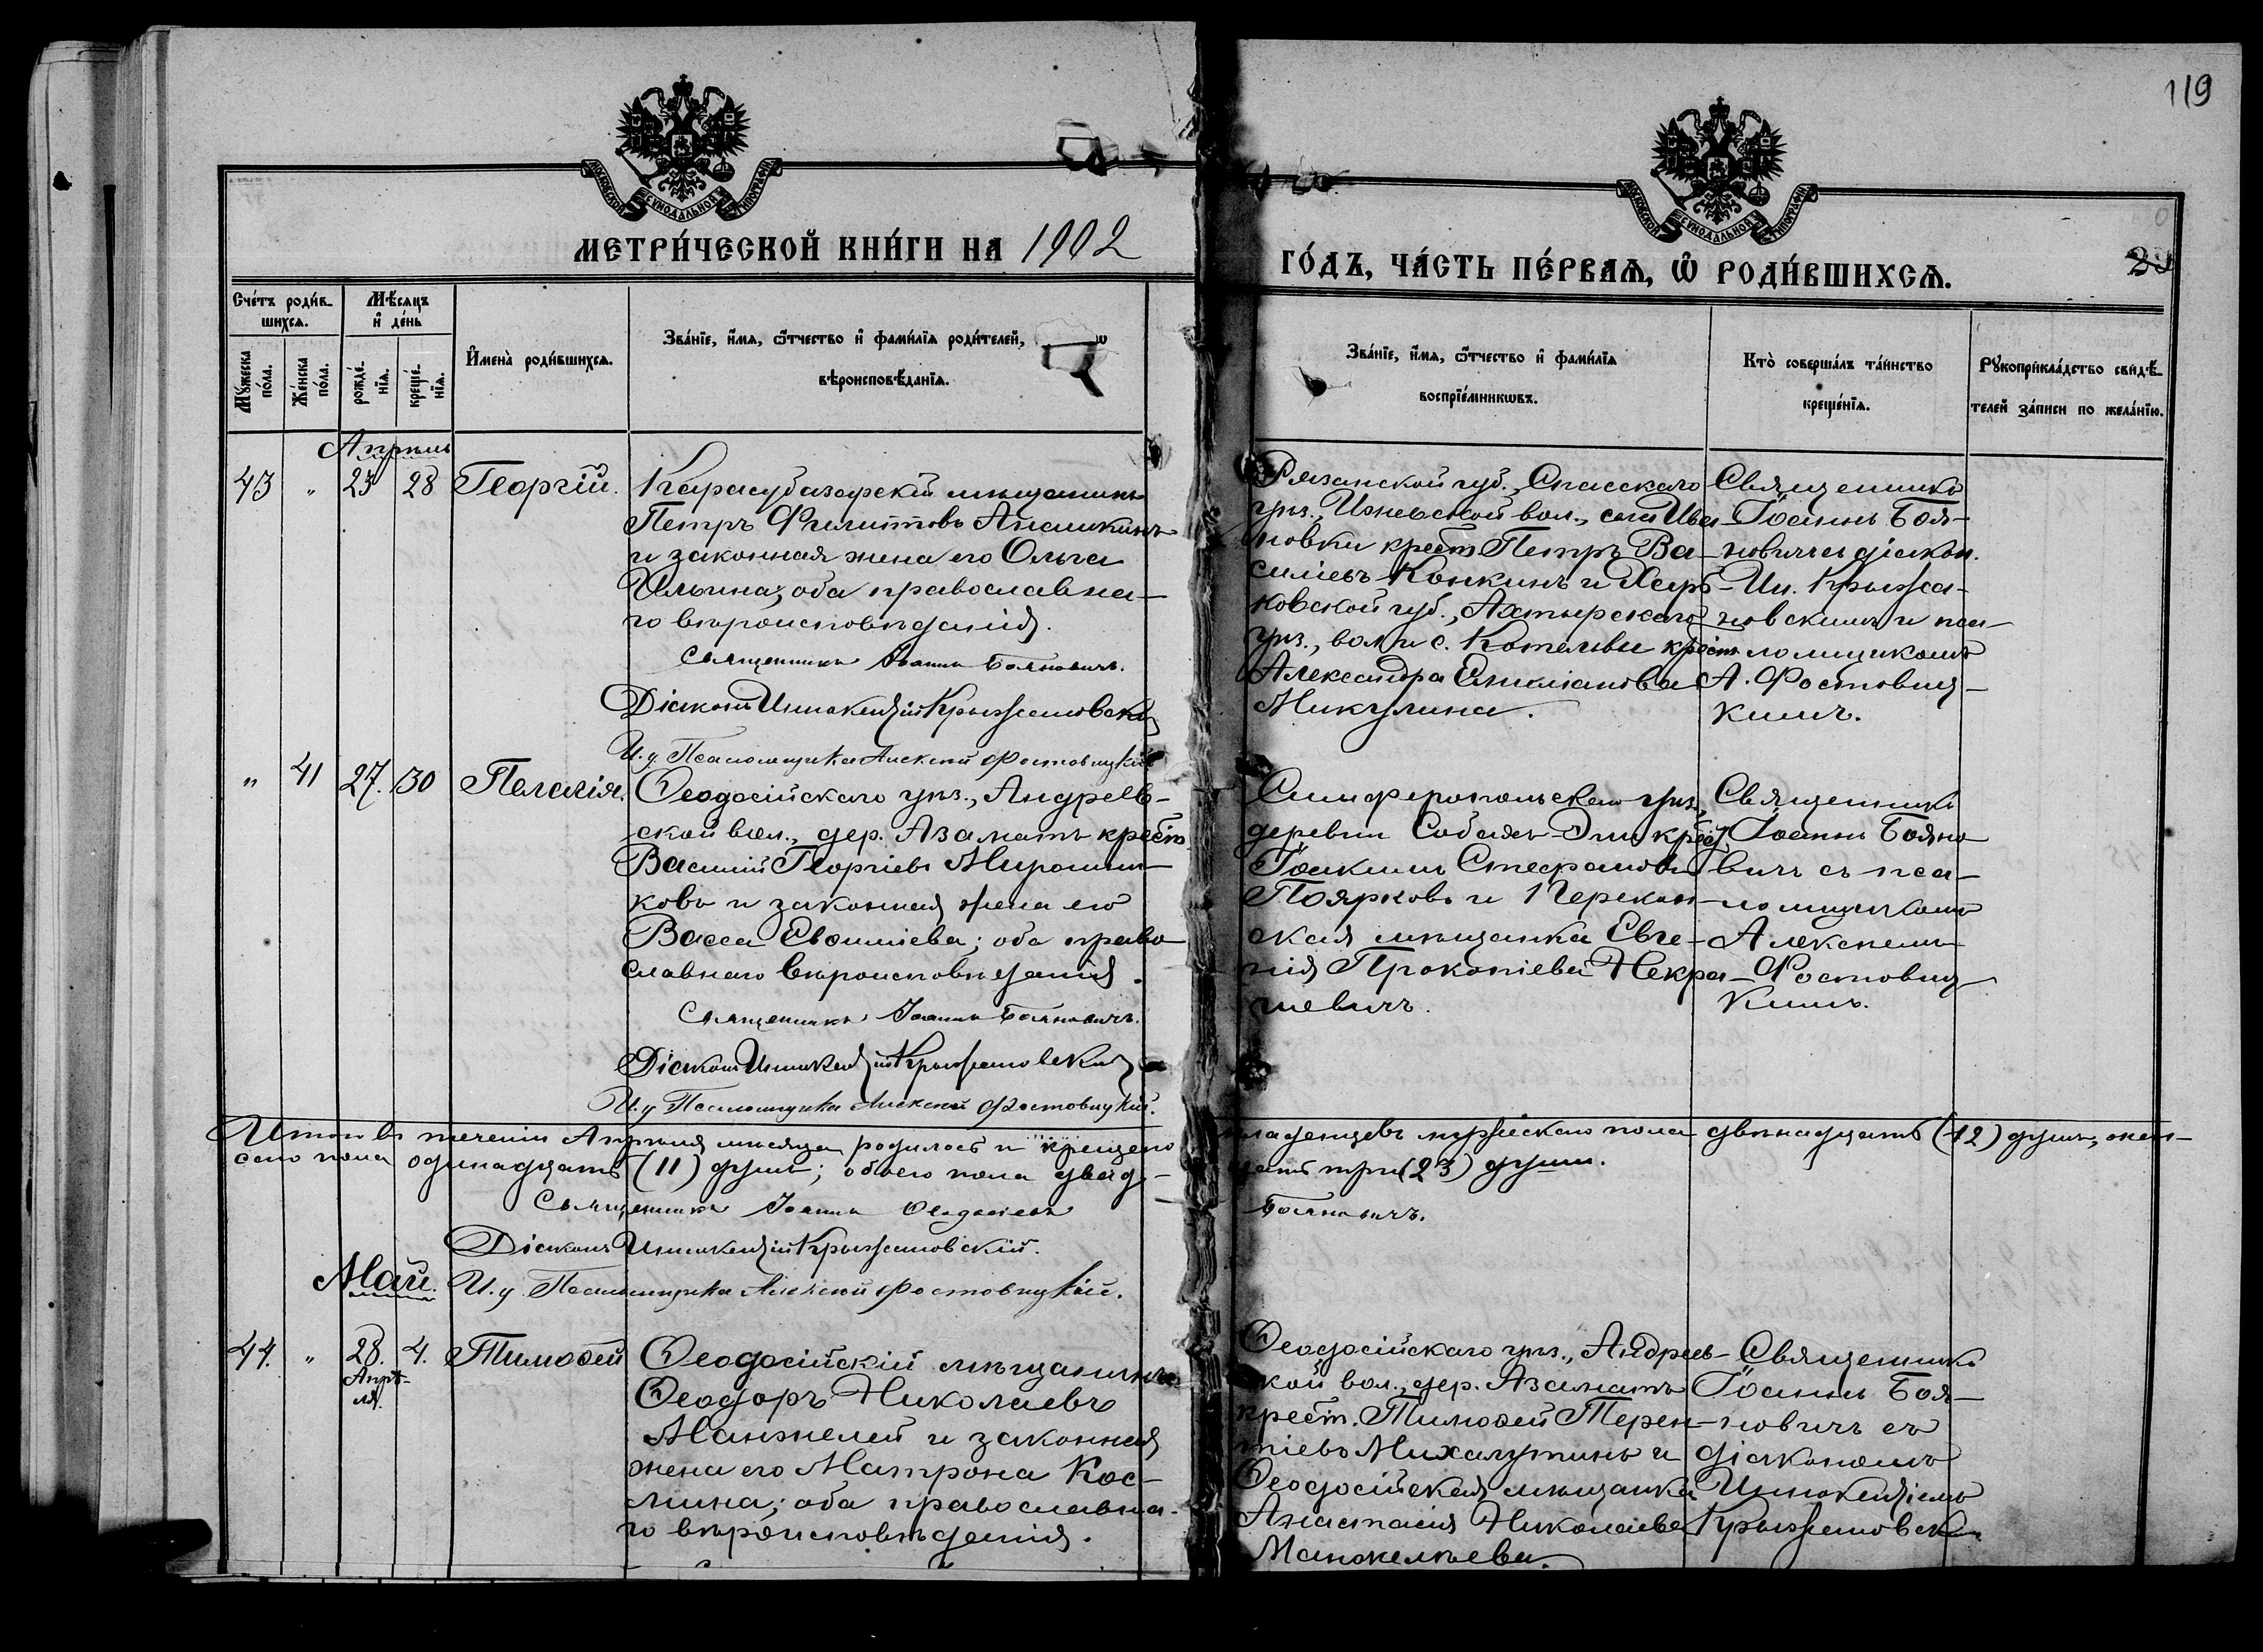 119
МОСКОВСКОЙ СѴНОДАЛЬНОЙ ТИПОГРАФІИ
МОСКОВСКОЙ СѴНОДАЛЬНОЙ ТИПОГРАФІИ
МЕТРИ́ЧЕСКОЙ КНИ́ГИ НА 1902
ГО́ДЪ, ЧА́СТЬ ПЕ́РВАѦ, Ѡ҆ РОДИ́ВШИХСѦ.
Сче́тъ роди́в-
шихсѧ.
Мꙋ́жеска
по́ла.
Же́нска
по́ла.
Мѣ́сяцъ
и҆ де́нь
рожде́-
нїѧ.
креще́-
нїѧ.
И҆мена̀ роди́вшихсѧ.
Зва́нїе, и҆́мѧ, ѻ҆́тчество и҆ фами́лїѧ роди́телей,
вѣроисповѣ́данїѧ.
Зва́нїе, и҆́мѧ, ѻ҆́тчество и҆ фами́лїѧ
воспрїе́мникѡвъ.
Кто̀ соверша́лъ та́инство
креще́нїѧ.
Рꙋкоприкла́дство свидѣ́-
телей за́писи по жела́нїю.
Апрѣль
43 " 25 28 Георгій.
Карасубазарскій мѣщанинъ
Петръ Филиповъ Апашкинъ
и законная жена его Ольга
Ильина; оба православна-
го вѣроисповѣданія.
Священникъ Іоаннъ Бояновичъ.
Діаконъ Иннокентій Крыжановскій
И. д. Псаломщика Алексій Фостовицкій
Рязанской губ., Спасскаго
уѣз., Ижевской вол., села Ива-
новки крест. Петръ Ва-
силіевъ Конкинъ и Харь-
ковской губ., Ахтырскаго
уѣз., вол. и с. Котельвы крест.
Александра Емиліанова
Микулина.
Священникъ
Іоаннъ Боя-
новичъ съ діакон.
Ин. Крыжа-
новскимъ и пса-
ломщикомъ
А. Фостовиц-
кимъ.
" 41 27. 30 Пелагія.
Ѳеодосійскаго уѣз., Андреев-
ской вол., дер. Азаматъ крест.
Василій Георгіевъ Мирошни-
ковъ и законная жена его
Васса Евѳиміева; оба право-
славнаго вѣроисповѣданія.
Священникъ Іоаннъ Бояновичъ.
Діаконъ Иннокентій Крыжановскій
И. д. Псаломщика Алексій Фостовицкій.
Симферопольскаго уѣз.,
деревни крест.
Іоакимъ Стефановъ
Поярковъ и Перекоп-
ская мѣщанка Евге-
нія Прокопіева Некра-
шевичъ.
Священникъ
Іоаннъ Бояно-
вичъ съ пса-
ломщикомъ
Алексіемъ
Фостовиц-
кимъ.
Итого въ теченіи Апрѣля мѣсяца родилось и крещено младенцевъ мужескаго пола двѣнадцать (12) душъ, жен-
скаго пола одинадцать (11) душъ; обоего пола двад- цать три (23) души.
Священникъ Іоаннъ Ѳеодосіевъ Бояновичъ.
Діаконъ Иннокентій Крыжановскій.
И. д. Псаломщика Алексій Фостовицкій.
Май.
44. " 28. 4. Тимоѳей
Апрѣ-
ля.
Ѳеодосійскій мѣщанинъ
Ѳеодоръ Николаевъ
Манжелей и законная
жена его Матрона Кос-
мина; оба православна-
го вѣроисповѣданія.
Ѳеодосійскаго уѣз., Андреев-
ской вол., дер. Азаматъ
крест. Тимоѳей Терен-
тіевъ Михалутинъ и
Ѳеодосійская мѣщанка
Анастасія Николаева
Манжелѣева.
Священникъ
Іоаннъ Боя-
новичъ съ
діакономъ
Иннокентіемъ
Крыжановск.